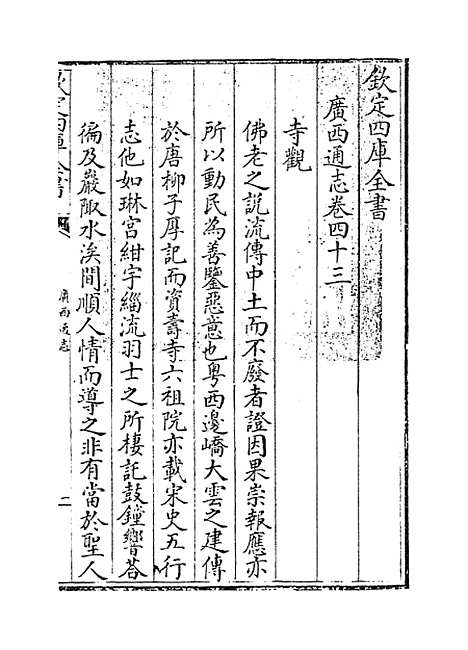 欽定四庫全書
廣西通志卷四十三
寺觀
佛老之說流傳中土而不廢者證因果崇報應亦
所以動民為善鑒惡意也粤西邊嶠大雲之建傳
於唐柳子厚記而資壽寺六祖院亦載宋史五行
志他如琳宫紺宇緇流羽士之所棲託鼓鐘響答
徧及巖陬水涘間順人情而導之非有當於聖人
欽定四庫全書
廣西通志